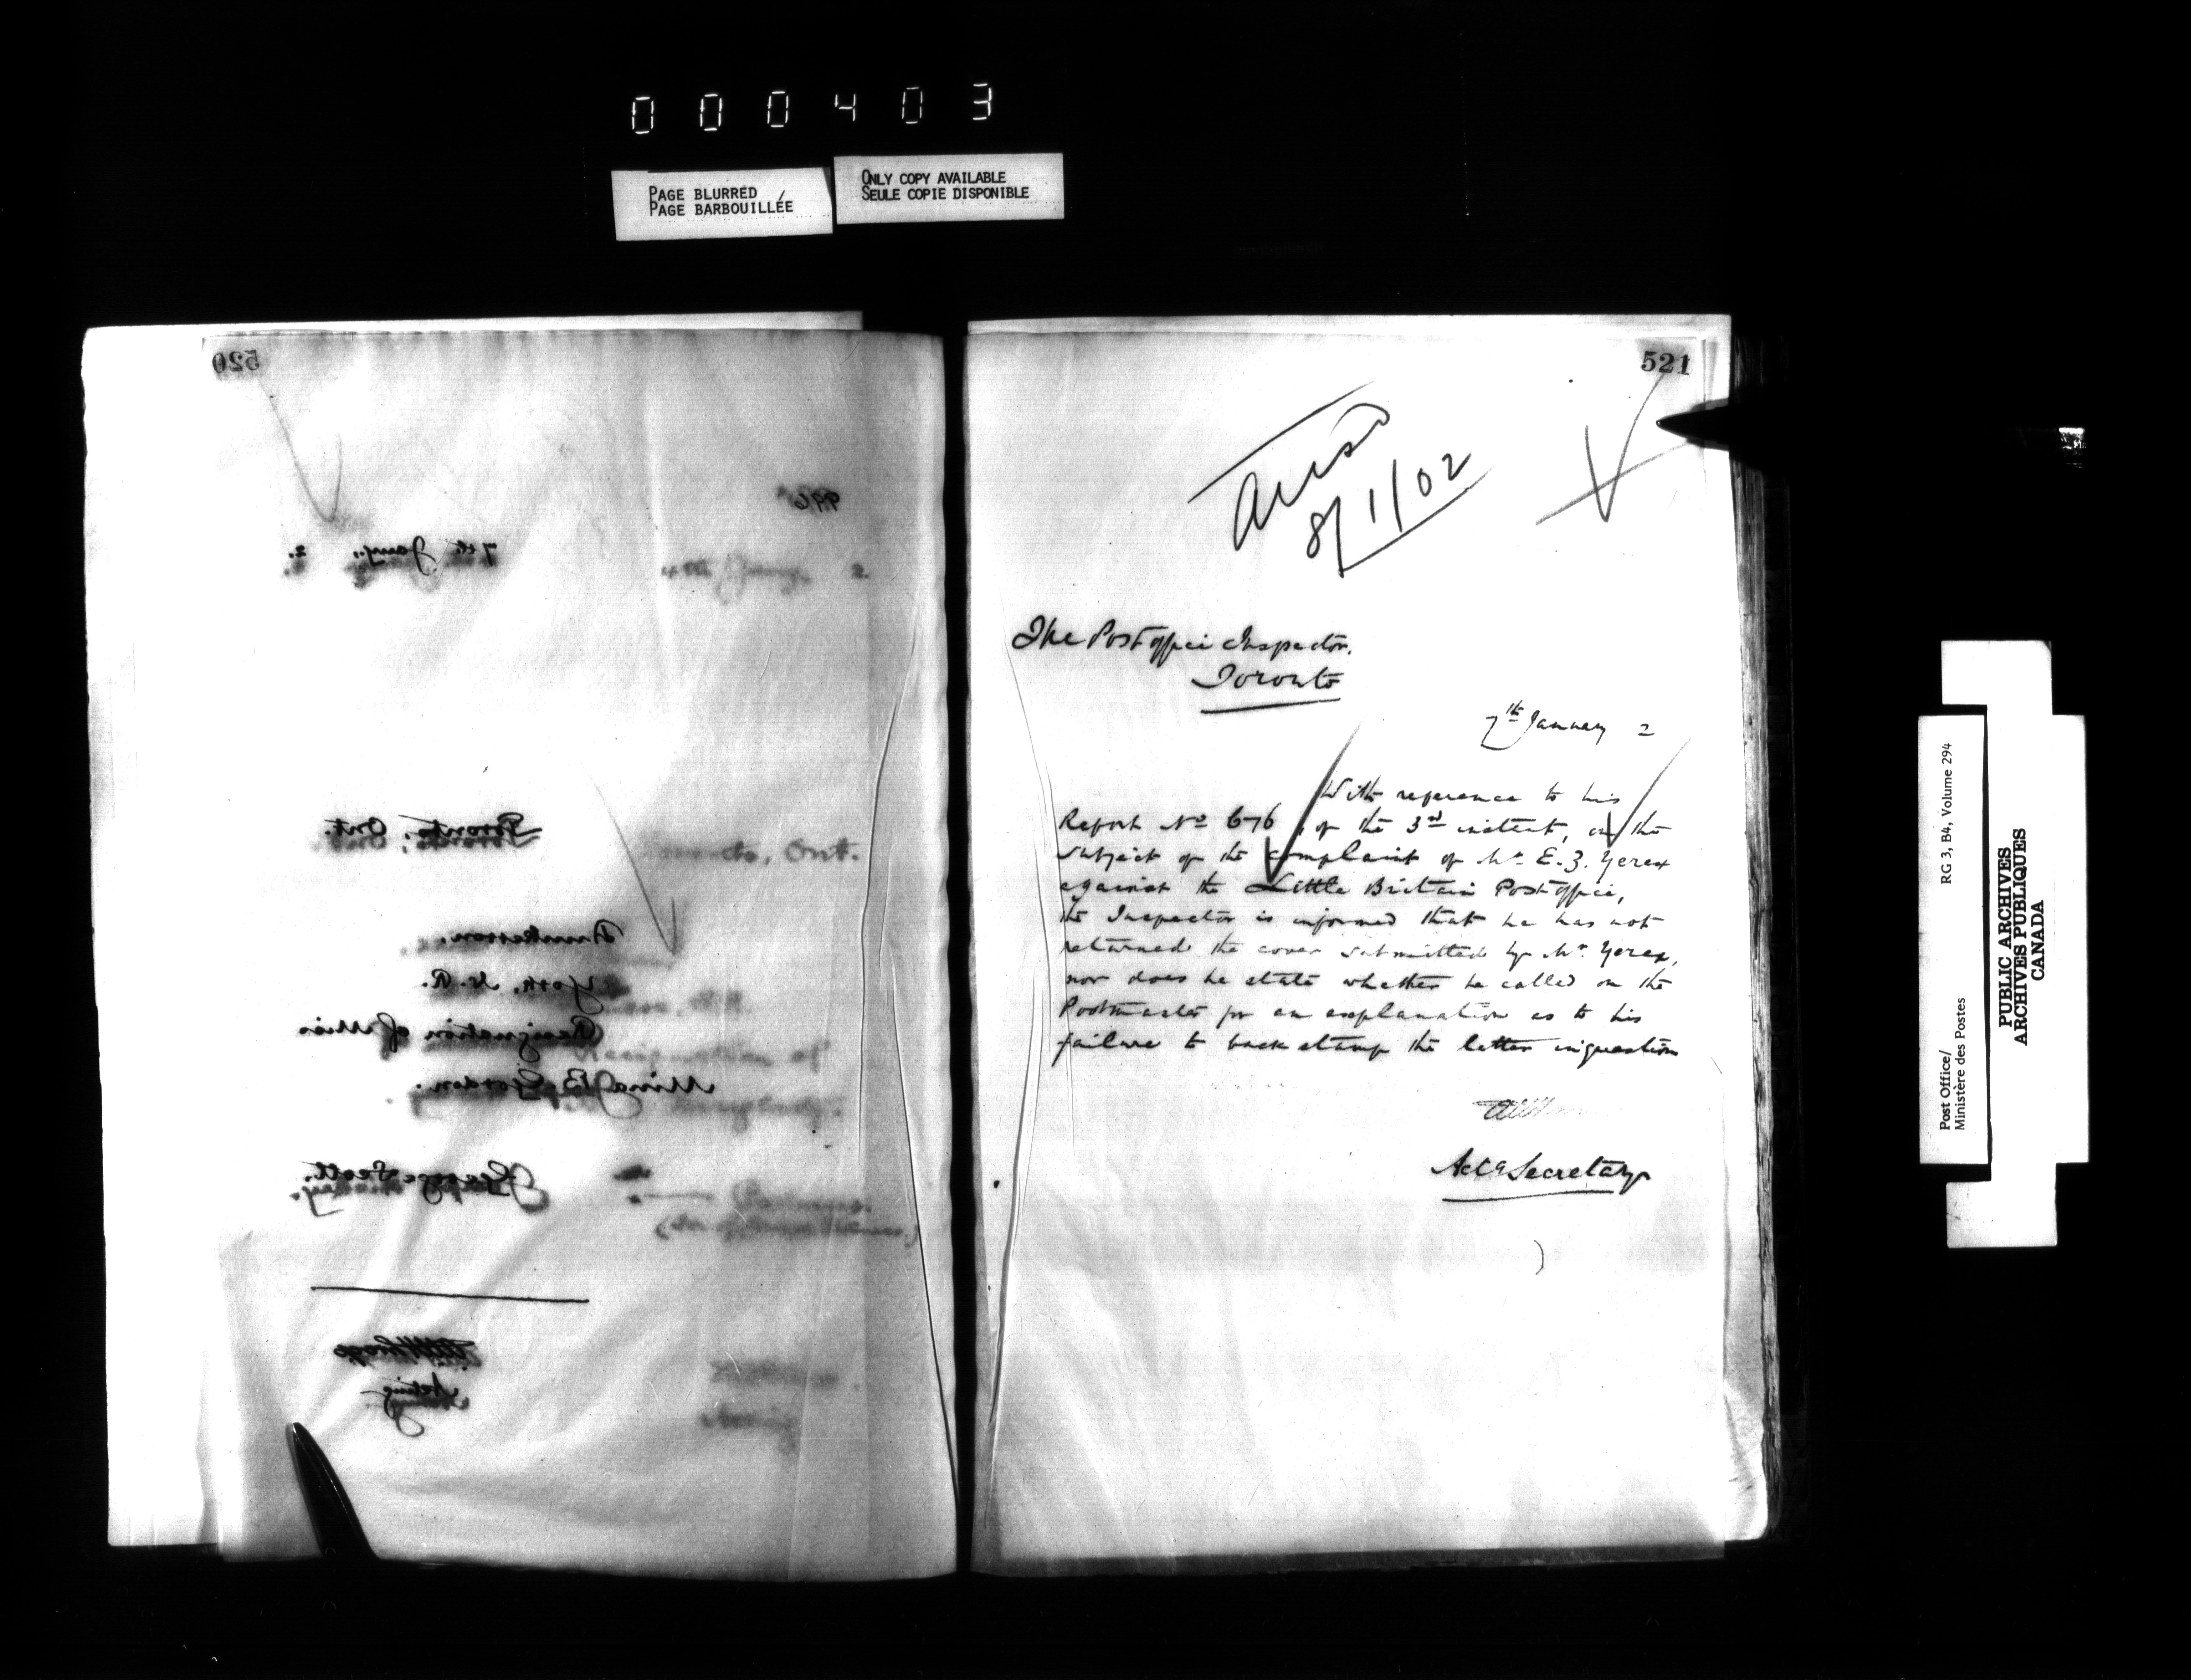 000403
PAGE BLURRED
PAGE BARBOUILLÉE
ONLY COPY AVAILABLE
SEULE COPIE DISPONIBLE
520
996
7th Jany., 2.
Jany 2.
Toronto, Ont.
Ont.
York, N.R.
Resignation of Miss
Resignation of
Mina B. Gordon.
George Scott.
Acting
Acting
521
8/1/02
The Post office Inspector.
Toronto
7th January 2
With reference to his
Report No 676, of the 3rd instant, on the
subject of the complaint of Mr E. Z. Yerex
against the Little Britain Post office,
the Inspector is informed that he has not
returned the cover submitted by Mr. Yerex,
nor does he state whether he called on the
Postmaster for an explanation as to his
failure to back stamp the letter in question
Actg Secretary
Post Office/
Ministère des Postes
RG 3, B4, Volume 294
PUBLIC ARCHIVES
ARCHIVES PUBLIQUES
CANADA